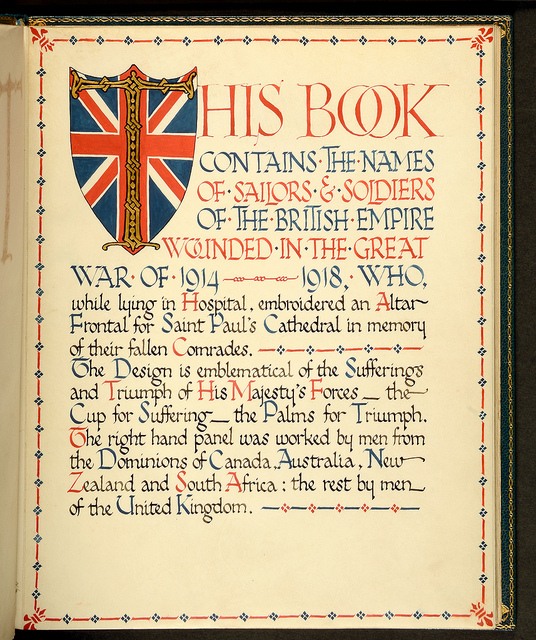 THIS BOOK
CONTAINS·THE·NAMES
OF·SAILORS·&·SOLDIERS
OF·THE·BRITISH·EMPIRE
WOUNDED·IN·THE·GREAT
WAR·OF·1914 — 1918, WHO,
while lying in Hospital, embroidered an Altar
Frontal for Saint Paul's Cathedral in memory
of their fallen Comrades.
The Design is emblematical of the Sufferings
and Triumph of His Majesty's Forces — the
Cup for Suffering — the Palms for Triumph.
The right hand panel was worked by men from
the Dominions of Canada, Australia, New
Zealand and South Africa: the rest by men
of the United Kingdom.